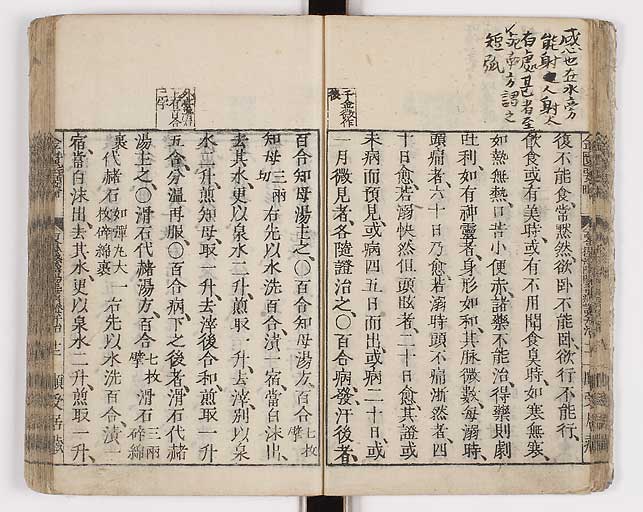 感也在水旁
能射人射人
有處甚者至
死南方謂之
短弧
後不能食常默然欲臥不能臥欲行不能行、
飲食或有美時或有不用聞食臭時、如寒無寒、
如熱無熱、口苦小便赤諸藥不能治得藥則劇
吐利、如有神靈者、身形如和、其脉微數每溺時、
頭痛者、六十日乃愈若溺時頭不痛淅然者、四
十日愈若溺快然但頭眩者、二十日愈其證或
未病而預見或病四五日而出或病二十日、或
一月微見者、各隨證治之、〇百合病、發汗後者、
千金效作
後
百合知母湯主之、〇百合知母湯方、百合七枚擘
知母三兩切右先以水洗百合漬一宿當白沫出、
去其水更以泉水二升、煎取一升、去滓別以泉
水二升、煎知母取一升、去滓後合和煎取一升
五合分溫再服〇百合病、下之後者、滑石代赭
湯主之、〇滑石代赭湯方、百合七枚擘滑石三兩碎綿
裹代赭石如彈丸大一枚碎綿裹右先以水洗百合、漬一
宿當白沫出去其水、更以泉水二升、煎取一升、